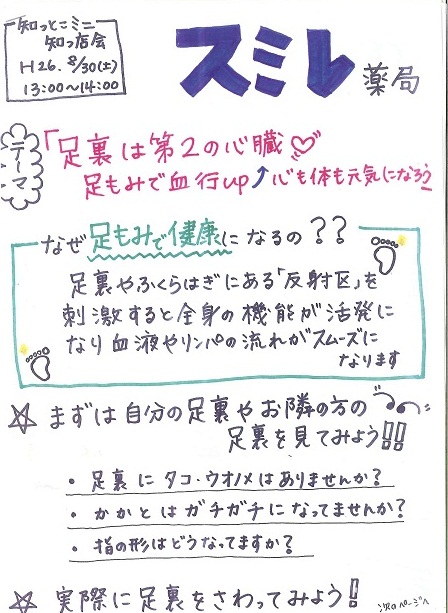 知っとこミニ
知っ店会
H26. 8/30(土)
13:00〜14:00
スミレ薬局
テーマ
「足裏は第2の心臓♡」
足もみで血行up↑心も体も元気になろう
なぜ足もみで健康になるの??
足裏やふくらはぎにある「反射区」を
刺激すると全身の機能が活発に
なり血液やリンパの流れがスムーズに
なります
☆まずは自分の足裏やお隣の方の
足裏を見てみよう!!
・足裏にタコ・ウオノメはありませんか?
・かかとはガチガチになってませんか?
・指の形はどうなってますか?
☆実際に足裏をさわってみよう!
次のページへ